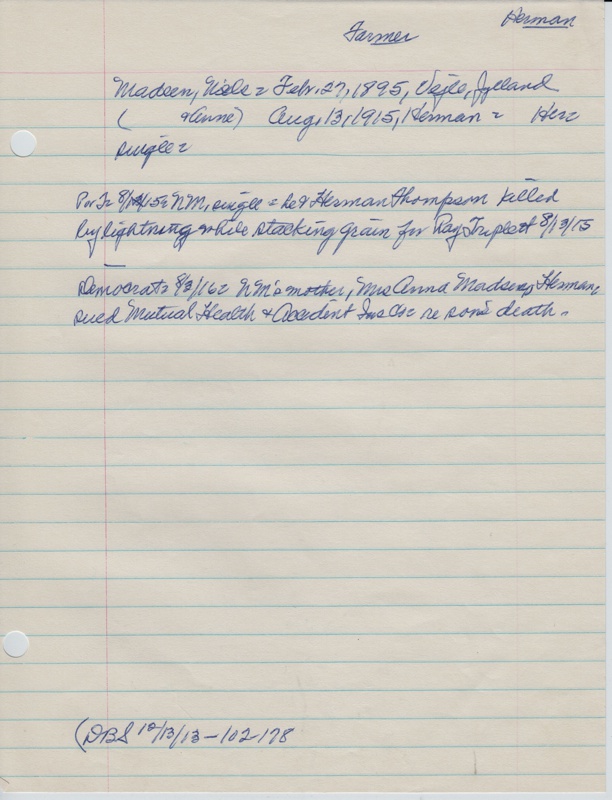 Herman
Farmer
Madsen, Niels = Febr. 27, 1895, Vejle, Jylland
( &Anne) Aug. 13, 1915, Herman = Her =
single =
8/ /15 = NM, single = he & Herman Thompson killed
by lightning while stacking grain for Ray Triplett 8/13/15
—
Democrat = 8/3/16 = NM's mother, Mrs Anna Madsen, Herman,
sued Mutual Health & Accident Ins Co = re son's death.
(DBS 12/13/13-102-178